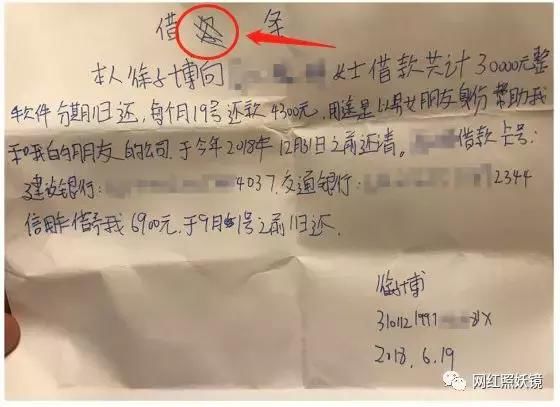 借 条
本人徐子博向 女士借款共计30000元整
软件分期归还,每个月19号还款4300元,用途是以男女朋友身份帮助我
和我的朋友的公司.于今年2018年12月31日之前还清。 借款卡号:
建设银行: 4037.交通银行: 2344
信用卡借予我6900元,于9月1号之前归还.
徐子博
3101121997 81X
2018.6.19
网红照妖镜